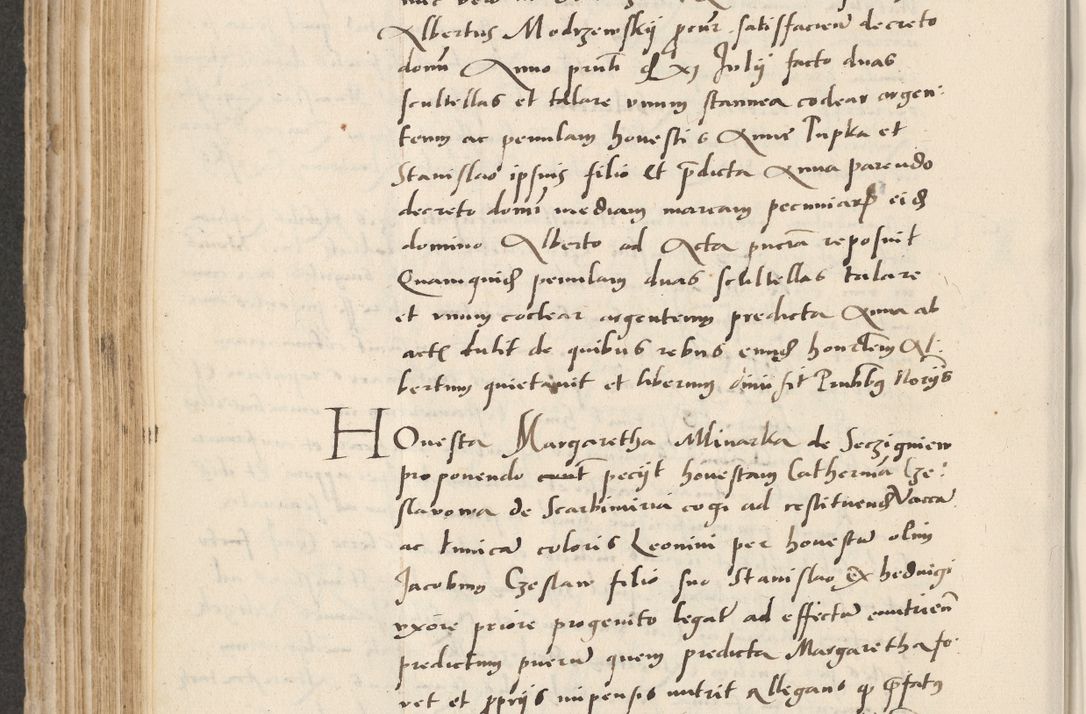 Albertus Modrzewskÿ pcur satisfacien decreto
domi Anno pnti XI Julÿ facto duas
scultellas et talare unum stannea coclear argen:
teum ac penulam honestis Anne Tupka et
Stanislao ipsius filio Et pdicta Anna parendo
decreto domi mediam marcam pecuniar eid
domino Alberto ad Acta pncia reposuit
Quamquid penulam duas scultellas talare
et unum coclear argenteum predicta Anna ab
act tulit de quibus rebus eund honestum Al:
bertum quietavit et liberum Pntibq Norÿs
HOnesta Margaretha Mlinarka de Seczigniew
proponendo pecÿt honestam Catherina Cze:
slavowa de Scarbimiria cogi ad restituend Vacca
ac tunica coloris Leonini per honestu olim
Jacobum Czeslaw filio suo Stanislao ex hedvigi
uxore priore progenito legat ad effectu enutrien
predictum pueru quem predicta Margaretha fo:
vet et pprÿs impensis nutrit Allegans q pfatus